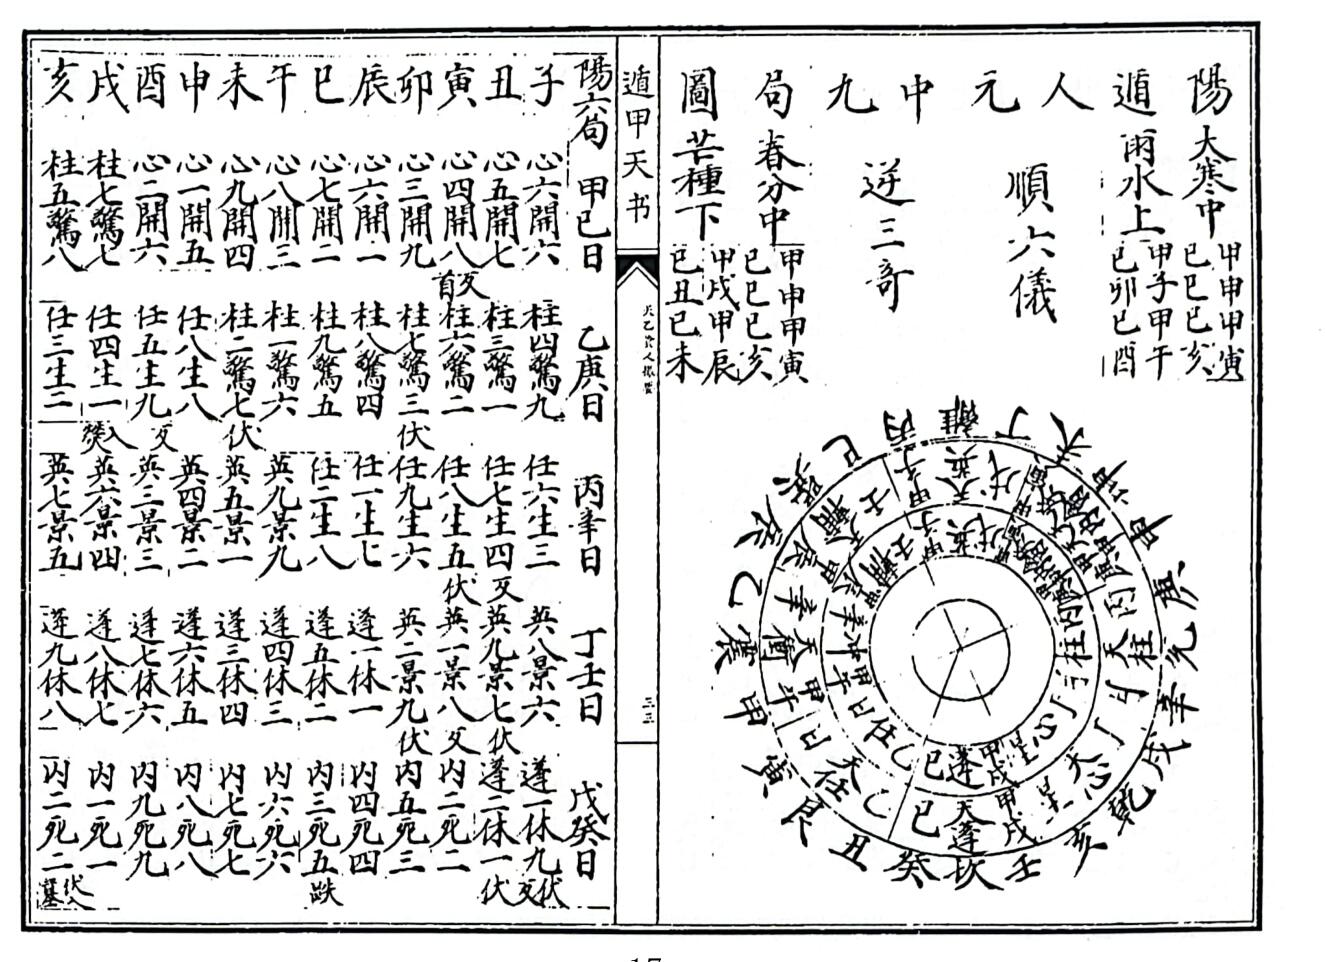 陽 大寒中 甲申甲寅
己巳己亥
遁 雨水上 甲子甲午
己卯己酉
人
元 順六儀
中
九 逆三奇
局 春分中 甲申甲寅
己巳己亥
圖 芒種下 甲戌甲辰
己丑己未
離 丁 未 坤 申 庚 兌 辛 戌 乾 亥 壬 坎 癸 丑 艮 寅 甲 震 乙 辰 巽 巳 丙
天英 戊 丙 天柱 丁 天心 甲戌 天蓬 己 乙 天任 甲午 天衝 辛 甲辰 天輔 壬 甲子
遁甲天书
三三
陽六局 甲己日 乙庚日 丙辛日 丁壬日 戊癸日
子 心六開六 柱四驚九 任六生三 英八景六 蓬一休九 伏反
丑 心五開七 柱三驚一 任七生四 反 英九景七 伏 蓬二休一 伏
寅 心四開八 反首 柱六驚二 任八生五 伏 英一景八 反 内二死二
卯 心三開九 柱七驚三 伏 任九生六 英二景九 伏 内五死三
辰 心六開一 柱八驚四 任一生七 蓬一休一 内四死四
巳 心七開二 柱九驚五 任二生八 蓬五休二 内三死五 跌
午 心八開三 柱一驚六 英九景九 蓬四休三 内六死六
未 心九開四 柱二驚七 伏 英五景一 蓬三休四 内七死七
申 心一開五 任八生八 英四景二 蓬六休五 内八死八
酉 心二開六 任五生九 反 英三景三 蓬七休六 内九死九
戌 柱七驚七 任四生一 入 英六景四 蓬八休七 内一死一
亥 柱五驚八 任三生二 英七景五 蓬九休八 内二死二 伏入墓